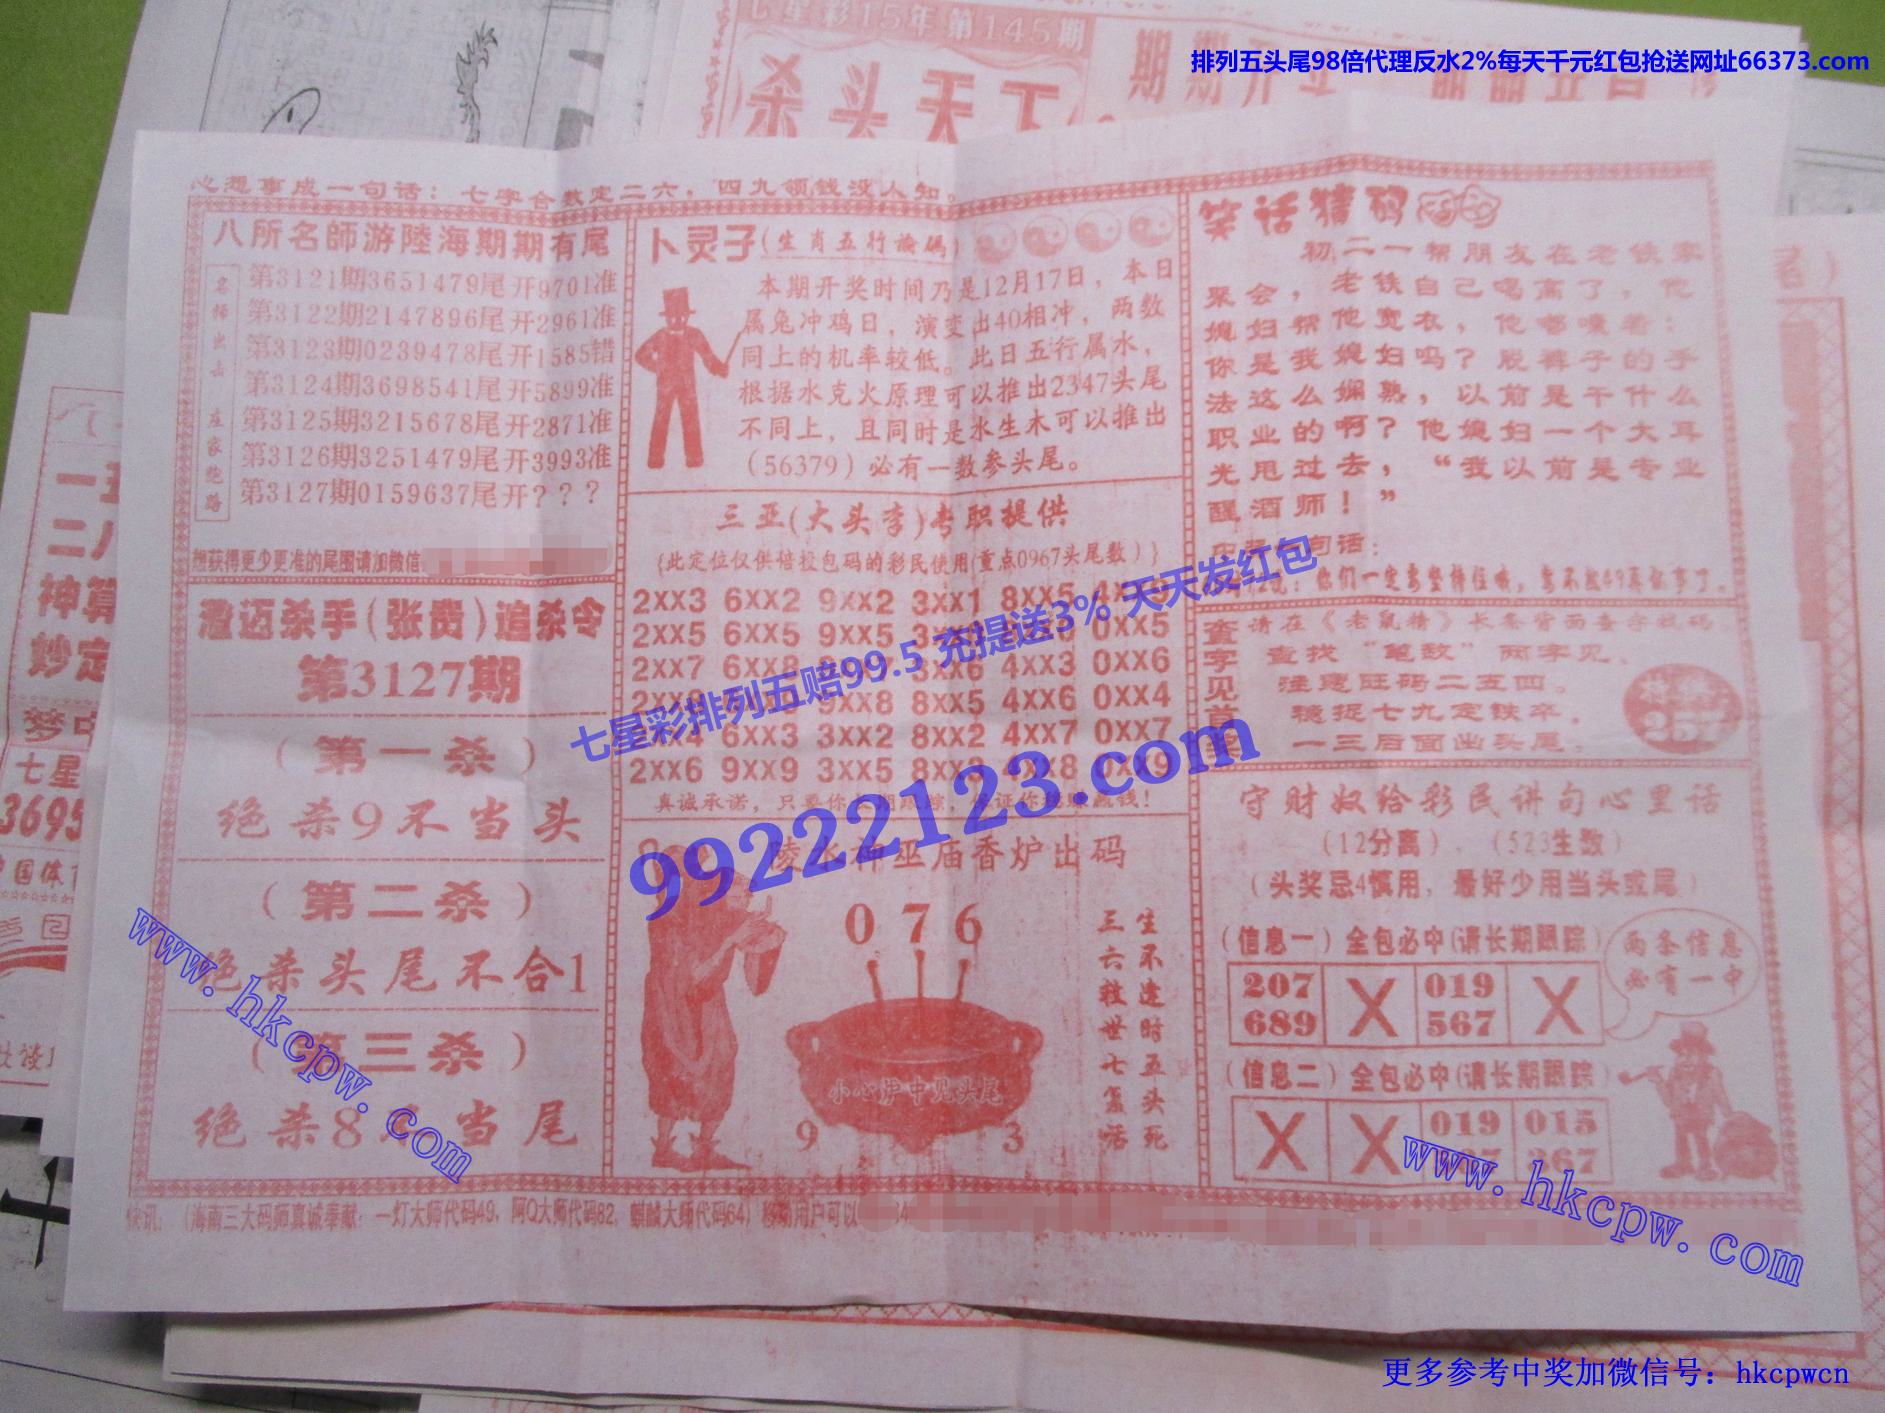 七星彩15年第145期
杀头天下
排列五头尾98倍代理反水2%每天千元红包抢送网址66373.com
心想事成一句话：七字合数定二六，四九领钱没人知。
八所名師游陸海期期有尾
名师出击 庄家跑路
第3121期3651479尾开9701准
第3122期2147896尾开2961准
第3123期0239478尾开1585错
第3124期3698541尾开5899准
第3125期3215678尾开2871准
第3126期3251479尾开3993准
第3127期0159637尾开？？？
想获得更少更准的尾图请加微信
澄迈杀手(张贵)追杀令
第3127期
（第一杀）
绝杀9不当头
（第二杀）
绝杀头尾不合1
（第三杀）
绝杀8不当尾
卜灵子(生肖五行論碼)
本期开奖时间乃是12月17日，本日
属兔冲鸡日，演变出40相冲，两数
同上的机率较低。此日五行属水，
根据水克火原理可以推出2347头尾
不同上，且同时是水生木可以推出
（56379）必有一数参头尾。
三亚(大头李)专职提供
{此定位仅供倍投包码的彩民使用(重点0967头尾数)}
2XX3 6XX2 9XX2 3XX1 8XX5
2XX5 6XX5 9XX5 0XX5
2XX7 6XX8 3XX6 4XX3 0XX6
9XX8 8XX5 4XX6 0XX4
6XX3 3XX2 8XX2 4XX7 0XX7
2XX6 9XX9 3XX5 0XX9
真诚承诺，只要你
七星彩排列五赔99.5 充提送3% 天天发红包
99222123.com
陵水神巫庙香炉出码
0 7 6
小心炉中见头尾
9 3
生不逢时五头死
三六救世七复活
笑话猜码
初二一帮朋友在老铁家
聚会，老铁自己喝高了，他
媳妇帮他宽衣，他嘟囔着：
你是我媳妇吗？脱裤子的手
法这么娴熟，以前是干什么
职业的啊？他媳妇一个大耳
光甩过去，“我以前是专业
醒酒师！”
查字见首奖
查找“笔敌”两字见。
注意旺码二五四。
稳捉七九定铁卒。
一三后面出头尾。
257
守财奴给彩民讲句心里话
（12分离），（523生数）
（头奖忌4慎用，最好少用当头或尾）
（信息一）全包必中(请长期跟踪)
207 X 019 X
689 567
两条信息
必有一中
（信息二）全包必中(请长期跟踪)
X X 019 015
267
快讯：（海南三大码师真诚奉献：一灯大师代码49，阿Q大师代码82，麒麟大师代码64）移动用户可以
www.hkcpw.com
www.hkcpw.com
更多参考中奖加微信号：hkcpwcn